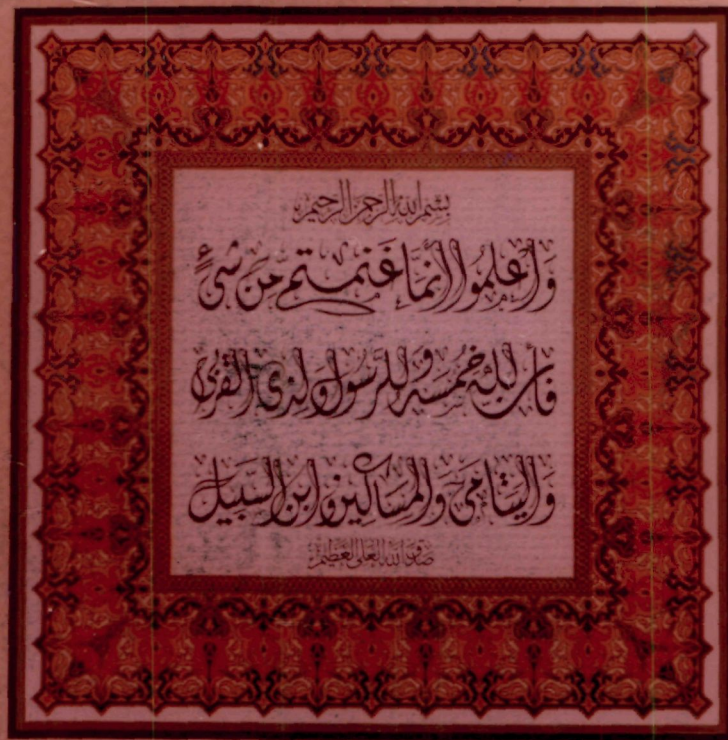 بسم الله الرحمن الرحيم
وَاعْلَمُوا أَنَّمَا غَنِمْتُمْ مِنْ شَيْءٍ
فَأَنَّ لِلَّهِ خُمُسَهُ وَلِلرَّسُولِ وَلِذِي الْقُرْبَى
وَالْيَتَامَى وَالْمَسَاكِينِ وَابْنِ السَّبِيلِ
صدق الله العلي العظيم